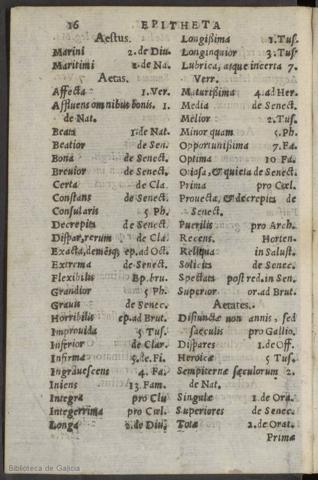 16 EPITHETA
Aestus.
Marini 2. de Diu.
Maritimi 2. de Na.
Aetas.
Affecta 1. Ver.
Affluens omnibus bonis. 1.
de Nat.
Beata 1. de Nat.
Beatior de Sen.
Bona de Senect.
Breuior de Senect.
Certa de Cla.
Constans de Senect.
Consularis 5. Ph.
Decrepita de Senect.
Dispar, rerum de Cla.
Exacta, demẽsq; ep. ad Oct.
Extrema de Senect.
Flexibilis Ep. bru.
Grandior 5 Ph.
Grauis de Senec.
Horribilis ep. ad Brut.
Improuida 5 Tus.
Inferior de Clar.
Infirma 5. de. Fi.
Ingrauescens 4. Fa.
Iniens 13. Fam.
Integra pro Clu
Integerrima pro Cœl.
Longa 2. de Diu.
Longißima 1. Tus.
Longinquior 3. Tus.
Lubrica, atque incerta 7.
Verr.
Maturißima 4. ad Her.
Media de Senect.
Melior 2. Tus.
Minor quam 5. Ph.
Opportunißima 7. Fa.
Optima 10 Fa.
Otiosa, & quieta de Senect.
Prima pro Cœl.
Prouecta, & decrepita de
Senect.
Puerilis pro Arch.
Recens. Horten.
Reliqua in Salust.
Solicita de Senec.
Spectata post red. in Sen.
Superior or. ad Brut.
Aetates.
Disiunctæ non annis, sed
sæculis pro Gallio.
Dispares 1. de Off.
Heroicæ 5 Tus.
Sempiternæ sæculorum 2.
de Nat.
Singulæ 1. de Ora.
Superiores de Senec.
Tota 2. de Orat.
Prima
Biblioteca de Galicia